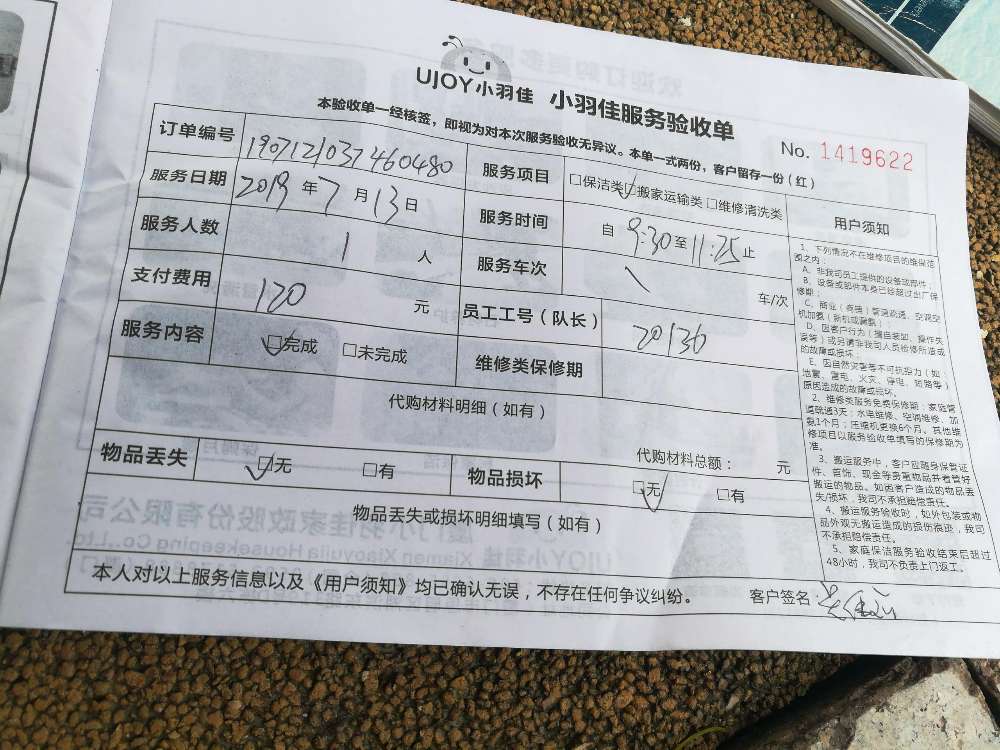 UJOY小羽佳 小羽佳服务验收单
本验收单一经核签，即视为对本次服务验收无异议。本单一式两份，客户留存一份（红）
No. 1419622
订单编号 190712103746 0480 服务项目 □保洁类 ☑搬家运输类 □维修清洗类
服务日期 2019 年 7 月 13 日 服务时间 自 9:30 至 11:25 止
服务人数 1 人 服务车次 车/次
支付费用 120 元 员工工号（队长） 20136
服务内容 ☑完成 □未完成 维修类保修期
代购材料明细（如有）
代购材料总额： 元
物品丢失 ☑无 □有 物品损坏 ☑无 □有
物品丢失或损坏明细填写（如有）
本人对以上服务信息以及《用户须知》均已确认无误，不存在任何争议纠纷。 客户签名：
用户须知
1、下列情况不在维修项目的维保范
围之内：
A、非我司员工提供的设备或部件；
B、设备或部件本身已经超过出厂保
修期；
E、因自然灾害等不可抗拒力（如：
地震、雷电、火灾、停电、短路等）
原因造成的故障或损坏。
2、维修类服务免费保修期：家庭管
道疏通3天；水电维修、空调维修、加
氨1个月；压缩机更换6个月。其他维
修项目以服务验收单填写的保修期为
准。
3、搬运服务中，客户应随身保管证
件、首饰、现金等贵重物品并看管好
搬运的物品。如因客户造成的物品丢
失/损坏，我司不承担赔偿责任。
4、搬运服务验收时，如外包装或物
品外观无搬运造成的损伤痕迹，我司
不承担赔偿责任。
5、家庭保洁服务验收结束后超过
48小时，我司不负责上门返工。